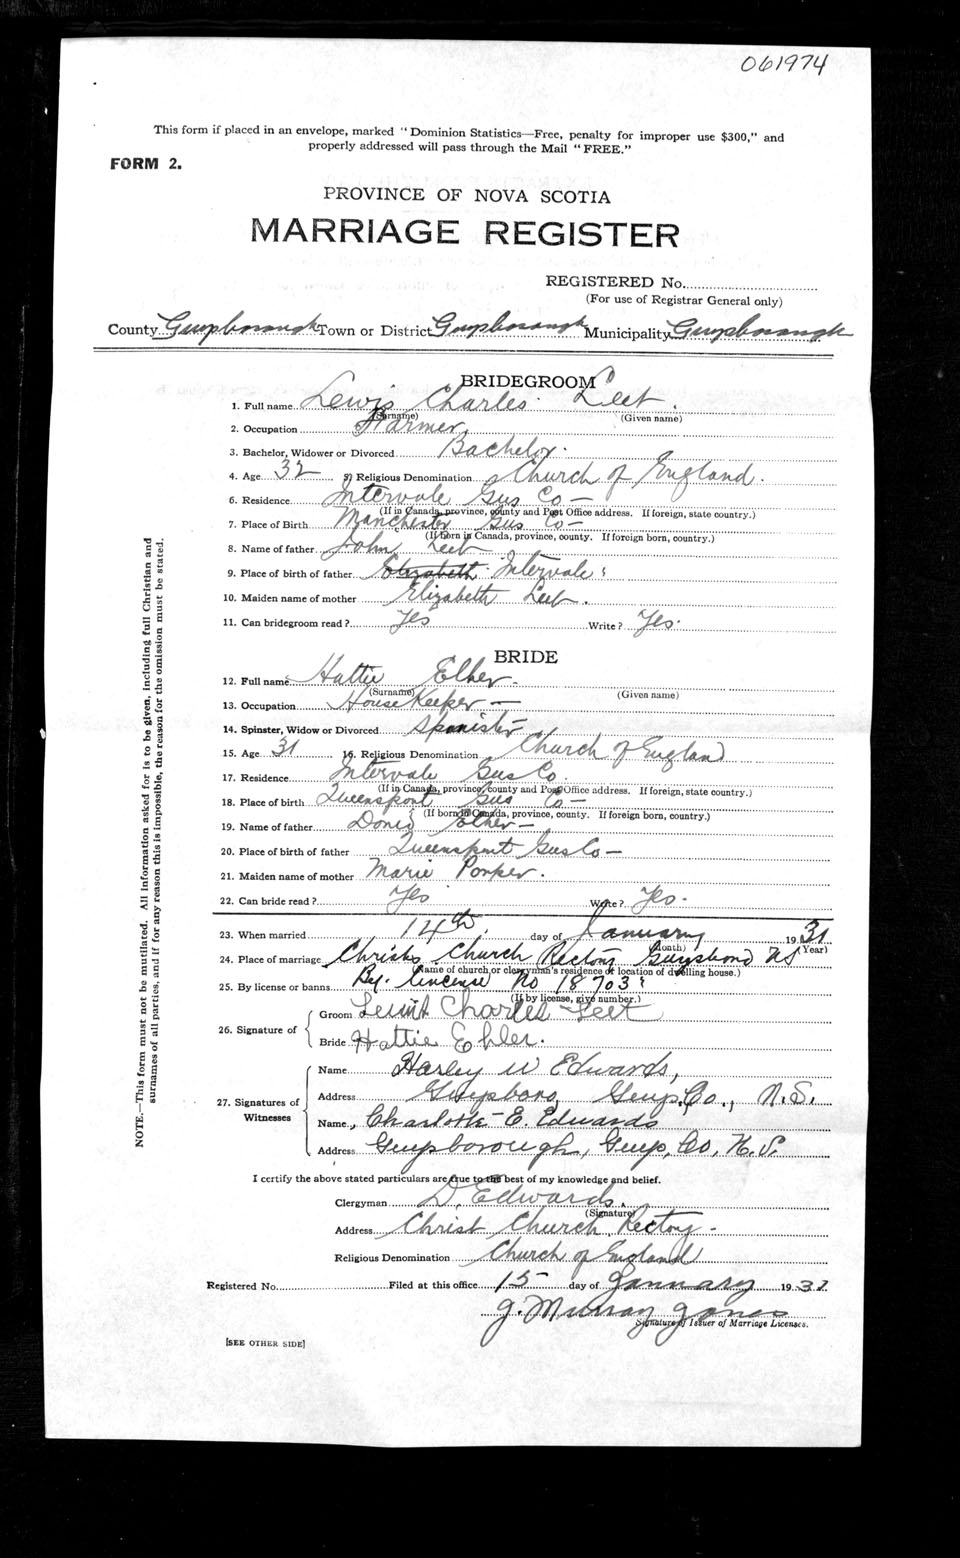 061974
This form if placed in an envelope, marked "Dominion Statistics—Free, penalty for improper use $300," and
properly addressed will pass through the Mail "FREE."
FORM 2.
PROVINCE OF NOVA SCOTIA
MARRIAGE REGISTER
REGISTERED No.
(For use of Registrar General only)
County Guysborough Town or District Guysborough Municipality Guysborough
BRIDEGROOM
1. Full name Lewis Charles Leet.
(Surname) (Given name)
2. Occupation Farmer
3. Bachelor, Widower or Divorced Bachelor.
4. Age 32 5. Religious Denomination Church of England.
6. Residence Intervale Gus Co—
(If in Canada, province, county and Post Office address. If foreign, state country.)
7. Place of Birth Manchester Gus Co—
(If born in Canada, province, county. If foreign born, country.)
8. Name of father John Leet
9. Place of birth of father Elizabeth Intervale
10. Maiden name of mother Elizabeth Leet.
11. Can bridegroom read? Yes Write? Yes.
BRIDE
12. Full name Hattie Elher.
(Surname) (Given name)
13. Occupation House Keeper—
14. Spinster, Widow or Divorced
15. Age 31 16. Religious Denomination Church of England
17. Residence Intervale Gus Co.
(If in Canada, province, county and Post Office address. If foreign, state country.)
18. Place of birth Queensport Gus Co—
(If born in Canada, province, county. If foreign born, country.)
19. Name of father Elher—
20. Place of birth of father Queensport Gus Co—
21. Maiden name of mother Marie
22. Can bride read? Yes Write? Yes.
23. When married 14th. day of January 1931
(Month) (Year)
24. Place of marriage Christs Church Rectory NS
(Name of church or clergyman's residence or location of dwelling house.)
25. By license or banns By. lincense No 18703
(If by license, give number.)
26. Signature of
Groom Charles Leet
Bride Hattie Ehler.
27. Signatures of Witnesses
Name Harley W Edwards,
Address Guysboro, Guys. Co., N.S.
Name Charlotte E. Edwards
Address Guysborough, Guys. Co. N.S.
I certify the above stated particulars are true to the best of my knowledge and belief.
Clergyman D. Edwards.
(Signature)
Address Christ Church Rectory—
Religious Denomination Church of England
Registered No. Filed at this office 15 day of January 1931
J. Murray Jones
Signature of Issuer of Marriage Licenses.
[SEE OTHER SIDE]
NOTE.—This form must not be mutilated. All information asked for is to be given, including full Christian and
surnames of all parties, and if for any reason this is impossible, the reason for the omission must be stated.